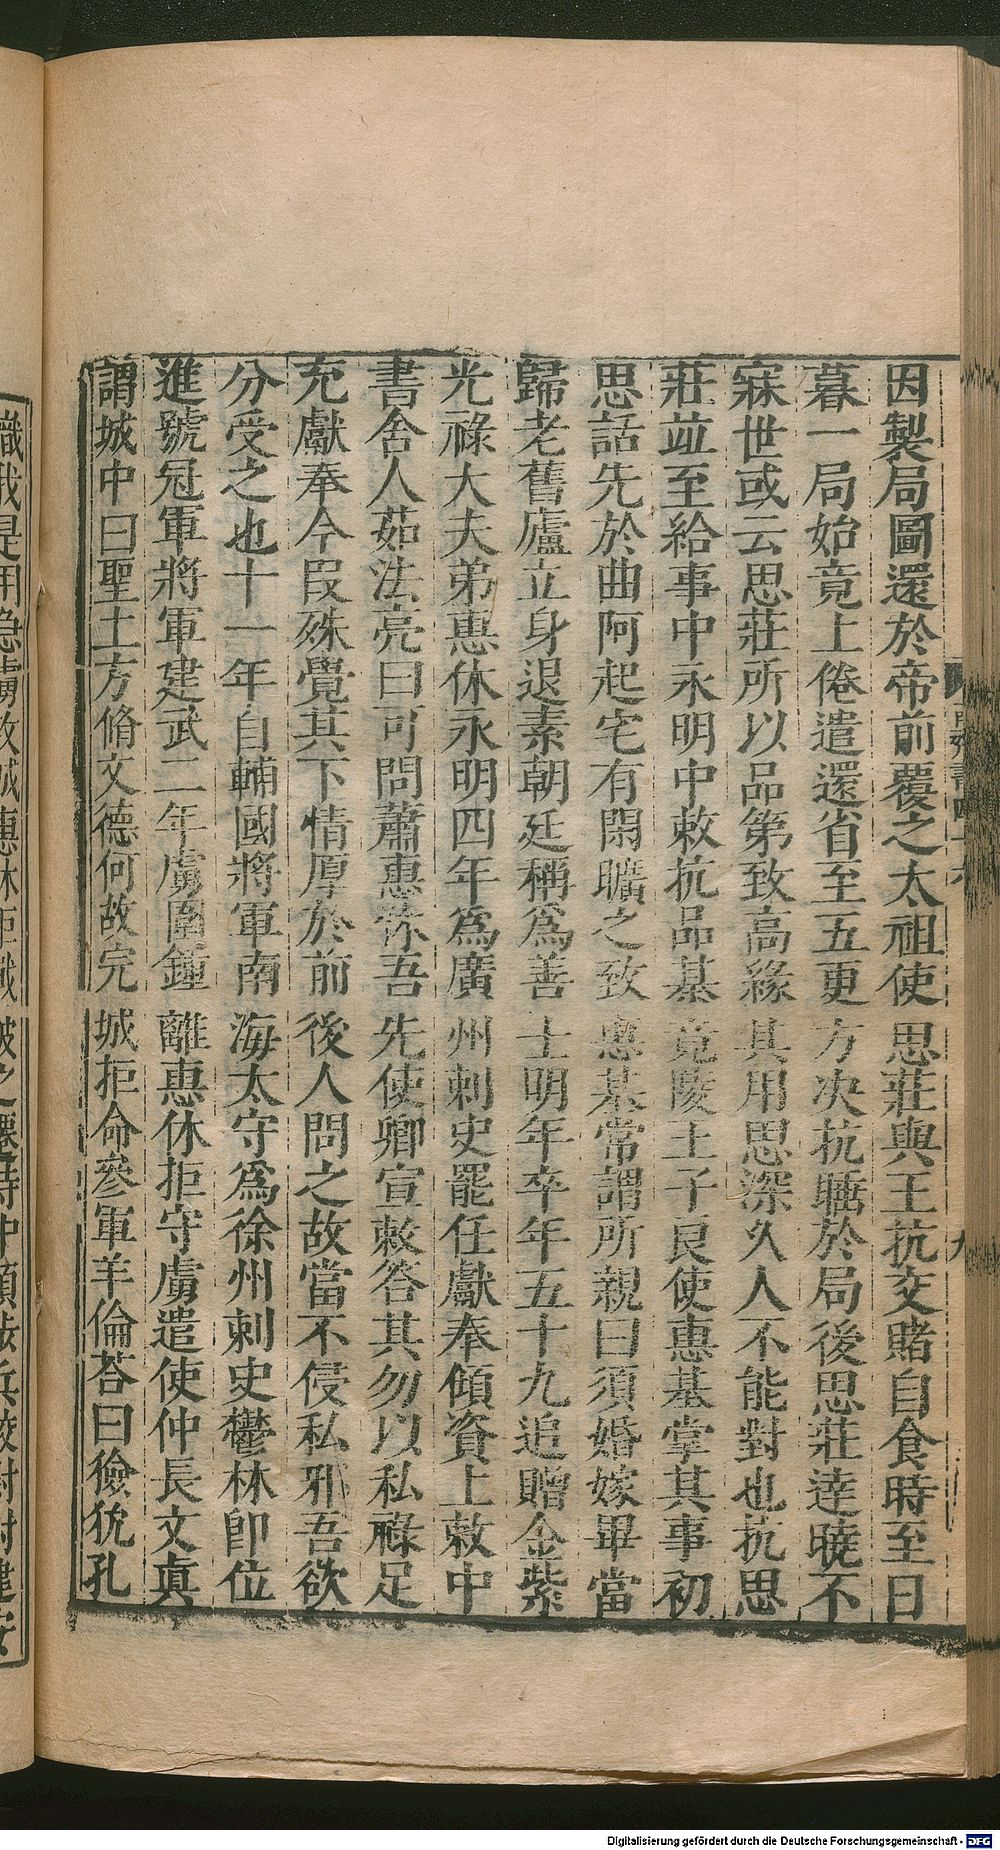 因製局圖還於帝前覆之太祖使思莊與王抗交賭自食時至日
暮一局始竟上倦遣還省至五更方決抗睡於局後思莊達曉不
寐世或云思莊所以品第致高緣其用思深久人不能對也抗思
莊並至給事中永明中敕抗品棊竟陵王子良使惠基掌其事初
思話先於曲阿起宅有閑曠之致惠基常謂所親曰須婚嫁畢當
歸老舊廬立身退素朝廷稱爲善士明年卒年五十九追贈金紫
光祿大夫弟惠休永明四年爲廣州刺史罷任獻奉傾資上敕中
書舍人茹法亮曰可問蕭惠休吾先使卿宣敕答其勿以私祿足
充獻奉今段殊覺其下情厚於前後人問之故當不侵私邪吾欲
分受之也十一年自輔國將軍南海太守爲徐州刺史鬱林卽位
進號冠軍將軍建武二年虜圍鍾離惠休拒守虜遣使仲長文眞
謂城中曰聖上方脩文德何故完城拒命參軍羊倫荅曰獫狁孔
熾我是用急虜攻城惠休拒戰破之遷侍中領步兵校尉封建安
Digitalisierung gefördert durch die Deutsche Forschungsgemeinschaft - DFG